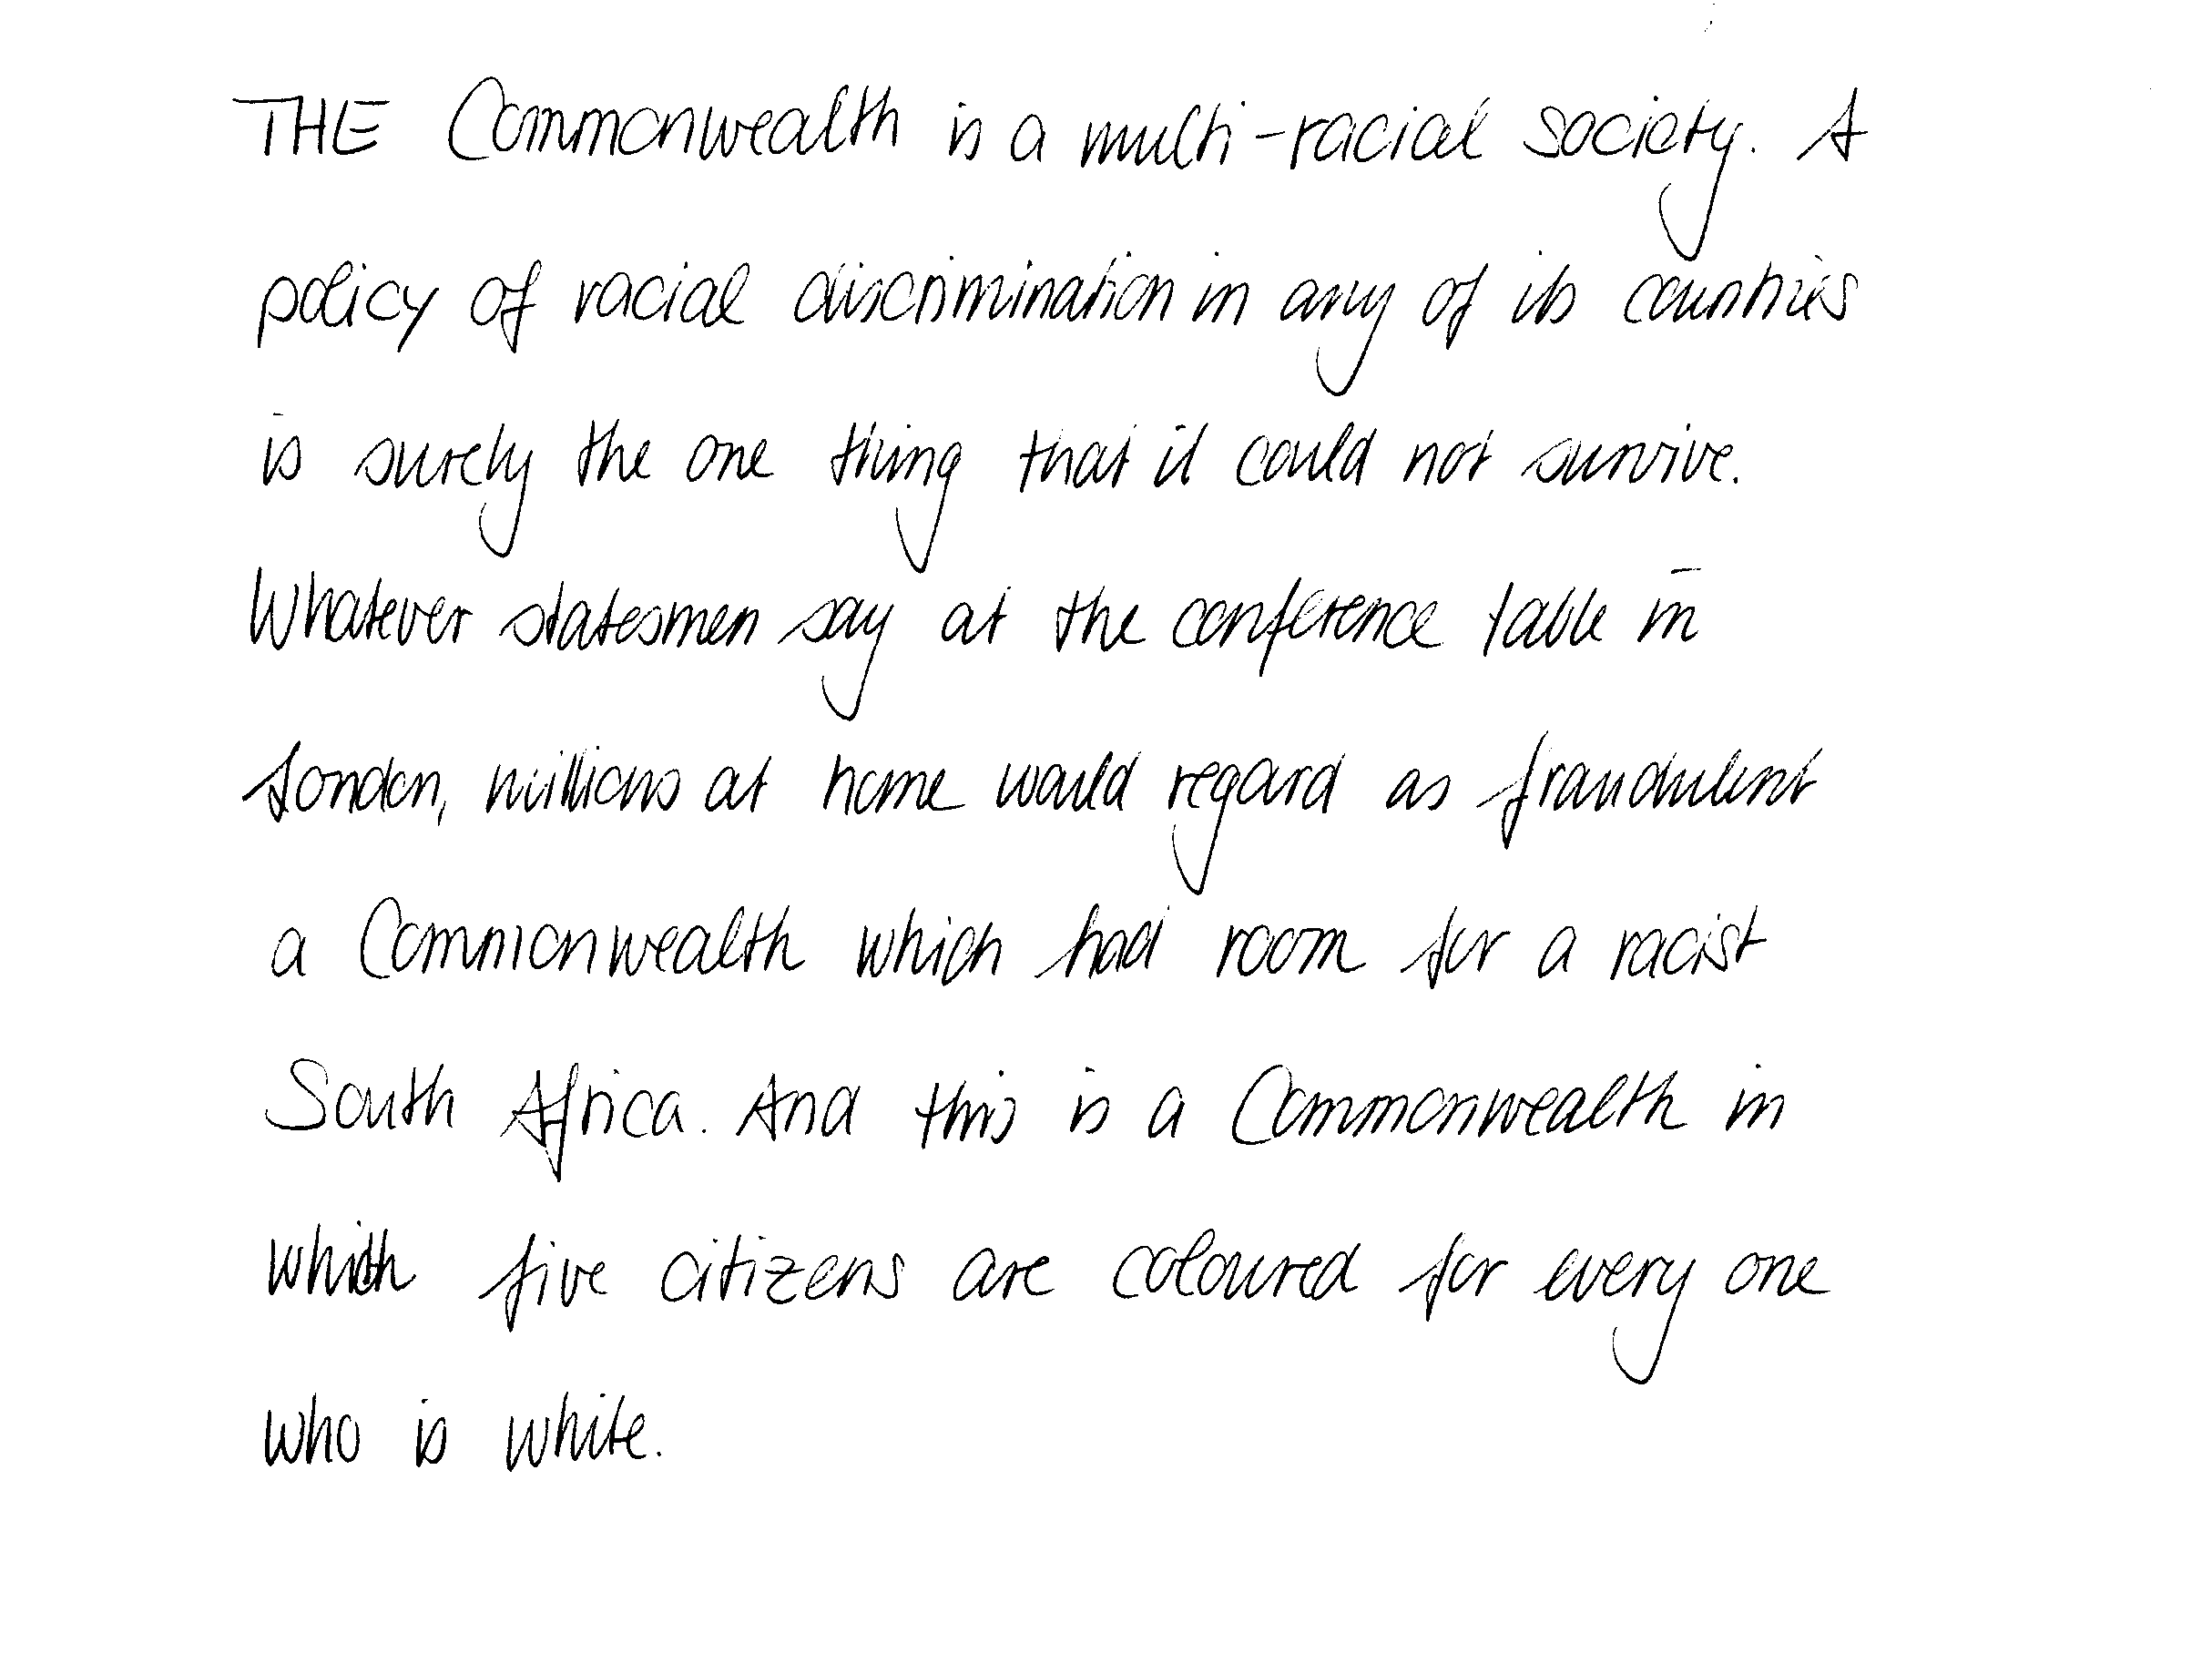 THE Commonwealth is a multi-racial society. A
policy of racial discrimination in any of its countries
is surely the one thing that it could not survive.
Whatever statesmen say at the conference table in
London, millions at home would regard as fraudulent
a Commonwealth which had room for a racist
South Africa. And this is a Commonwealth in
which five citizens are coloured for every one
who is white.